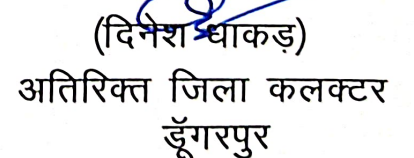 (दिनेश धाकड़)
अतिरिक्त जिला कलक्टर
डूँगरपुर